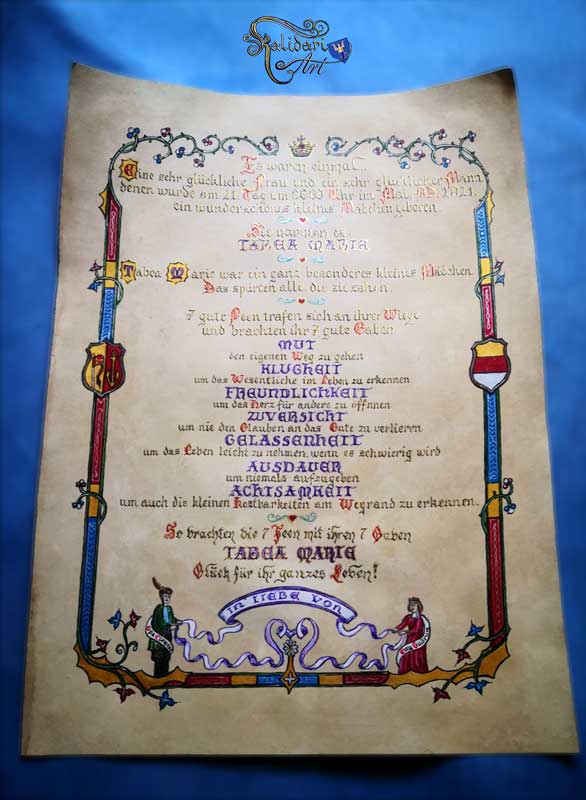 Kalidari
Art
Es waren einmal...
Eine sehr glückliche Frau und ein sehr glücklicher Mann
denen wurde am 21. Tag um Uhr im Mai, AD. 2021
ein kleines Mädchen geboren.
Sie nannten es
TABEA MARIE
Tabea Marie war ein ganz besonderes kleines Mädchen.
Das spürten alle, die sie sahen.
7 gute Feen trafen sich an ihrer Wiege
und brachten ihr 7 gute Gaben
MUT
den eigenen Weg zu gehen
KLUGHEIT
um das Wesentliche im Leben zu erkennen
FREUNDLICHKEIT
um das Herz für andere zu öffnen
ZUVERSICHT
um nie den Glauben an das Gute zu verlieren
GELASSENHEIT
um das Leben leicht zu nehmen, wenn es schwierig wird
AUSDAUER
um niemals aufzugeben
ACHTSAMKEIT
um auch die kleinen Kostbarkeiten am Wegrand zu erkennen.
So brachten die 7 Feen mit ihren 7 Gaben
TABEA MARIE
Glück für ihr ganzes Leben!
IN LIEBE VON